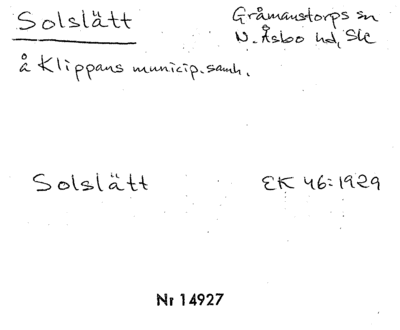 Solslätt
Gråmanstorps sn
N. Åsbo hd, Sk
å Klippans municip.samh.
Solslätt
EK 46:1929
Nr 14927